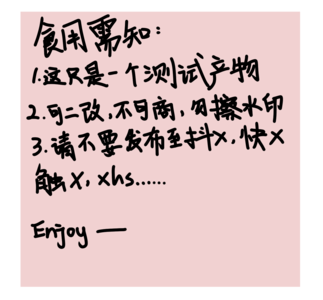 食用需知:
1.这只是一个测试产物
2.可二改,不可商,勿擦水印
3.请不要发布至抖x,快x
触x,xhs......
Enjoy —